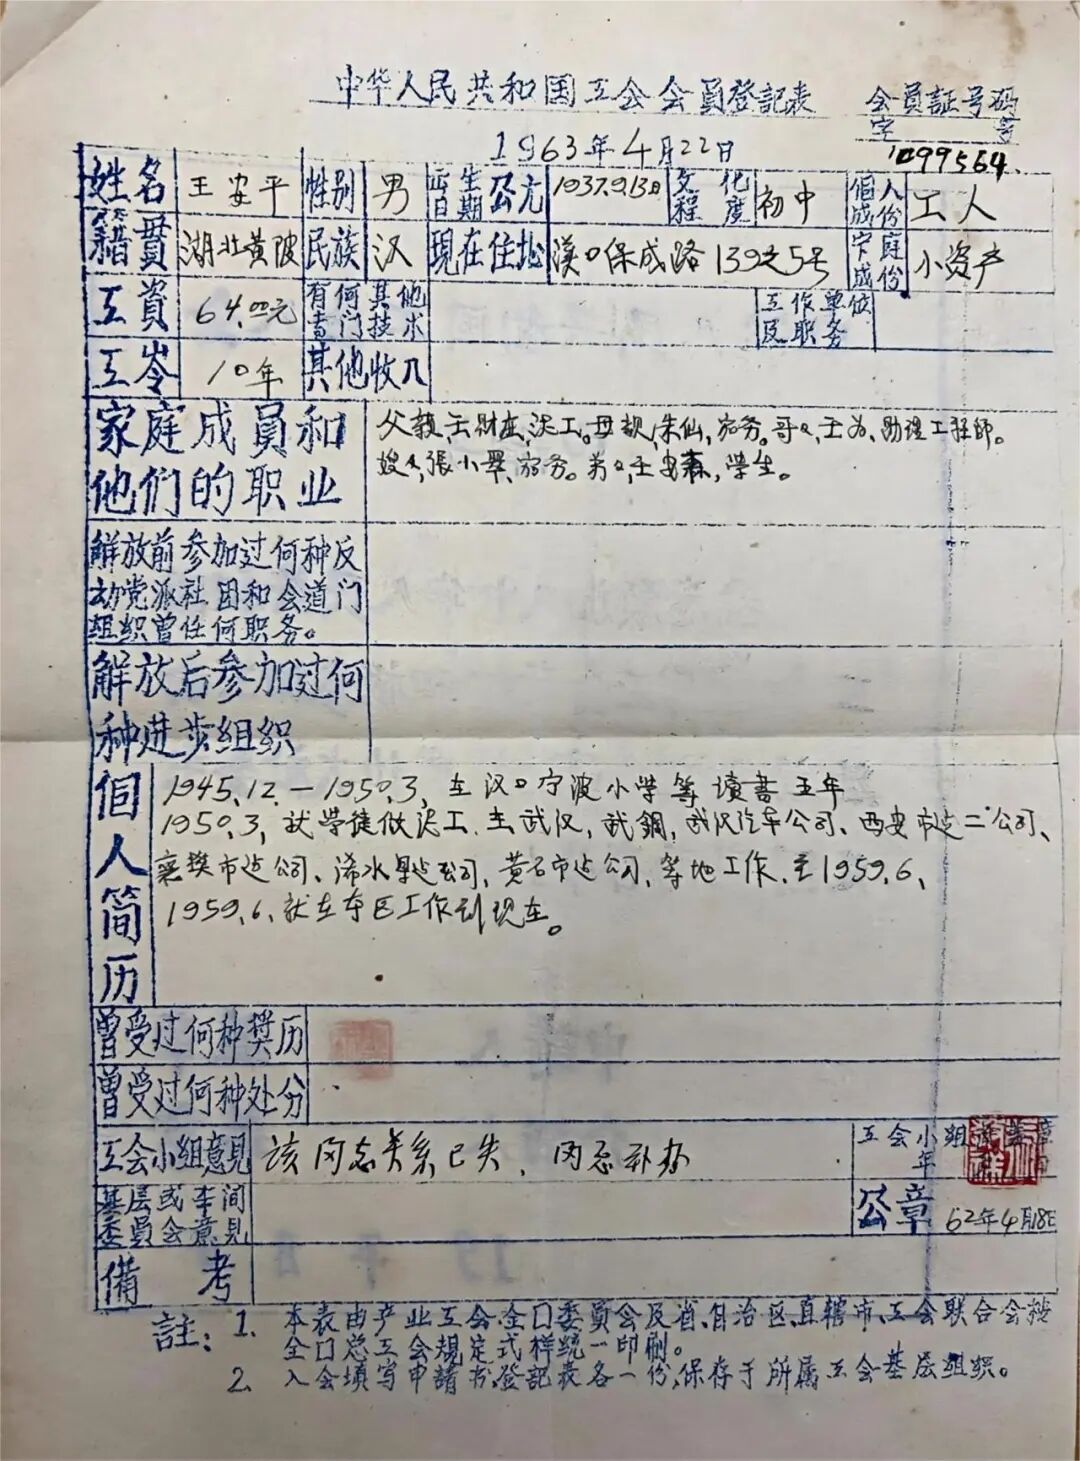 中华人民共和国工会会員登記表
会員証号码
字 号
1099564.
1963年4月22日
姓名 王安平 性别 男 出生日期 公元 1937.9.13日 文化程度 初中 個人成份 工人
籍貫 湖北黄陂 民族 汉 現在住址 漢口保成路139之5号 家庭成份 小资产
工資 64.00元 有何其他专门技术 工作单位及职务
工岺 10年 其他收入
家庭成員和 父親,王财,泥工。母親,朱仙,家务。哥々,王为,助理工程師。
他们的职业 嫂々,張小翠,家务。弟々,王安森,学生。
解放前参加过何种反
动党派社团和会道门
组织曾任何职务。
解放后参加过何
种进步组织
個人简历
1945.12.—1950.3,在汉口宁波小学等讀書五年
1950.3,就学徒做泥工.在武汉,武鋼,武汉汽车公司、西安市建二公司、
襄樊市建公司、浠水县建公司,黄石市建公司,等地工作.至1959.6,
1959.6,就在本区工作到现在。
曾受过何种奖历
曾受过何种处分
工会小组意見 该同志关系已失,同志补办 工会小組 章
年 日
基层或车间
委員会意見 公章 62年4月18日
備考
註:1. 本表由产业工会全囗委員会及省.自治区.直辖市.工会联合会按
全囗总工会規定式样統一印刷。
2. 入会填写申請书.登記表各一份,保存于所属工会基层组织。